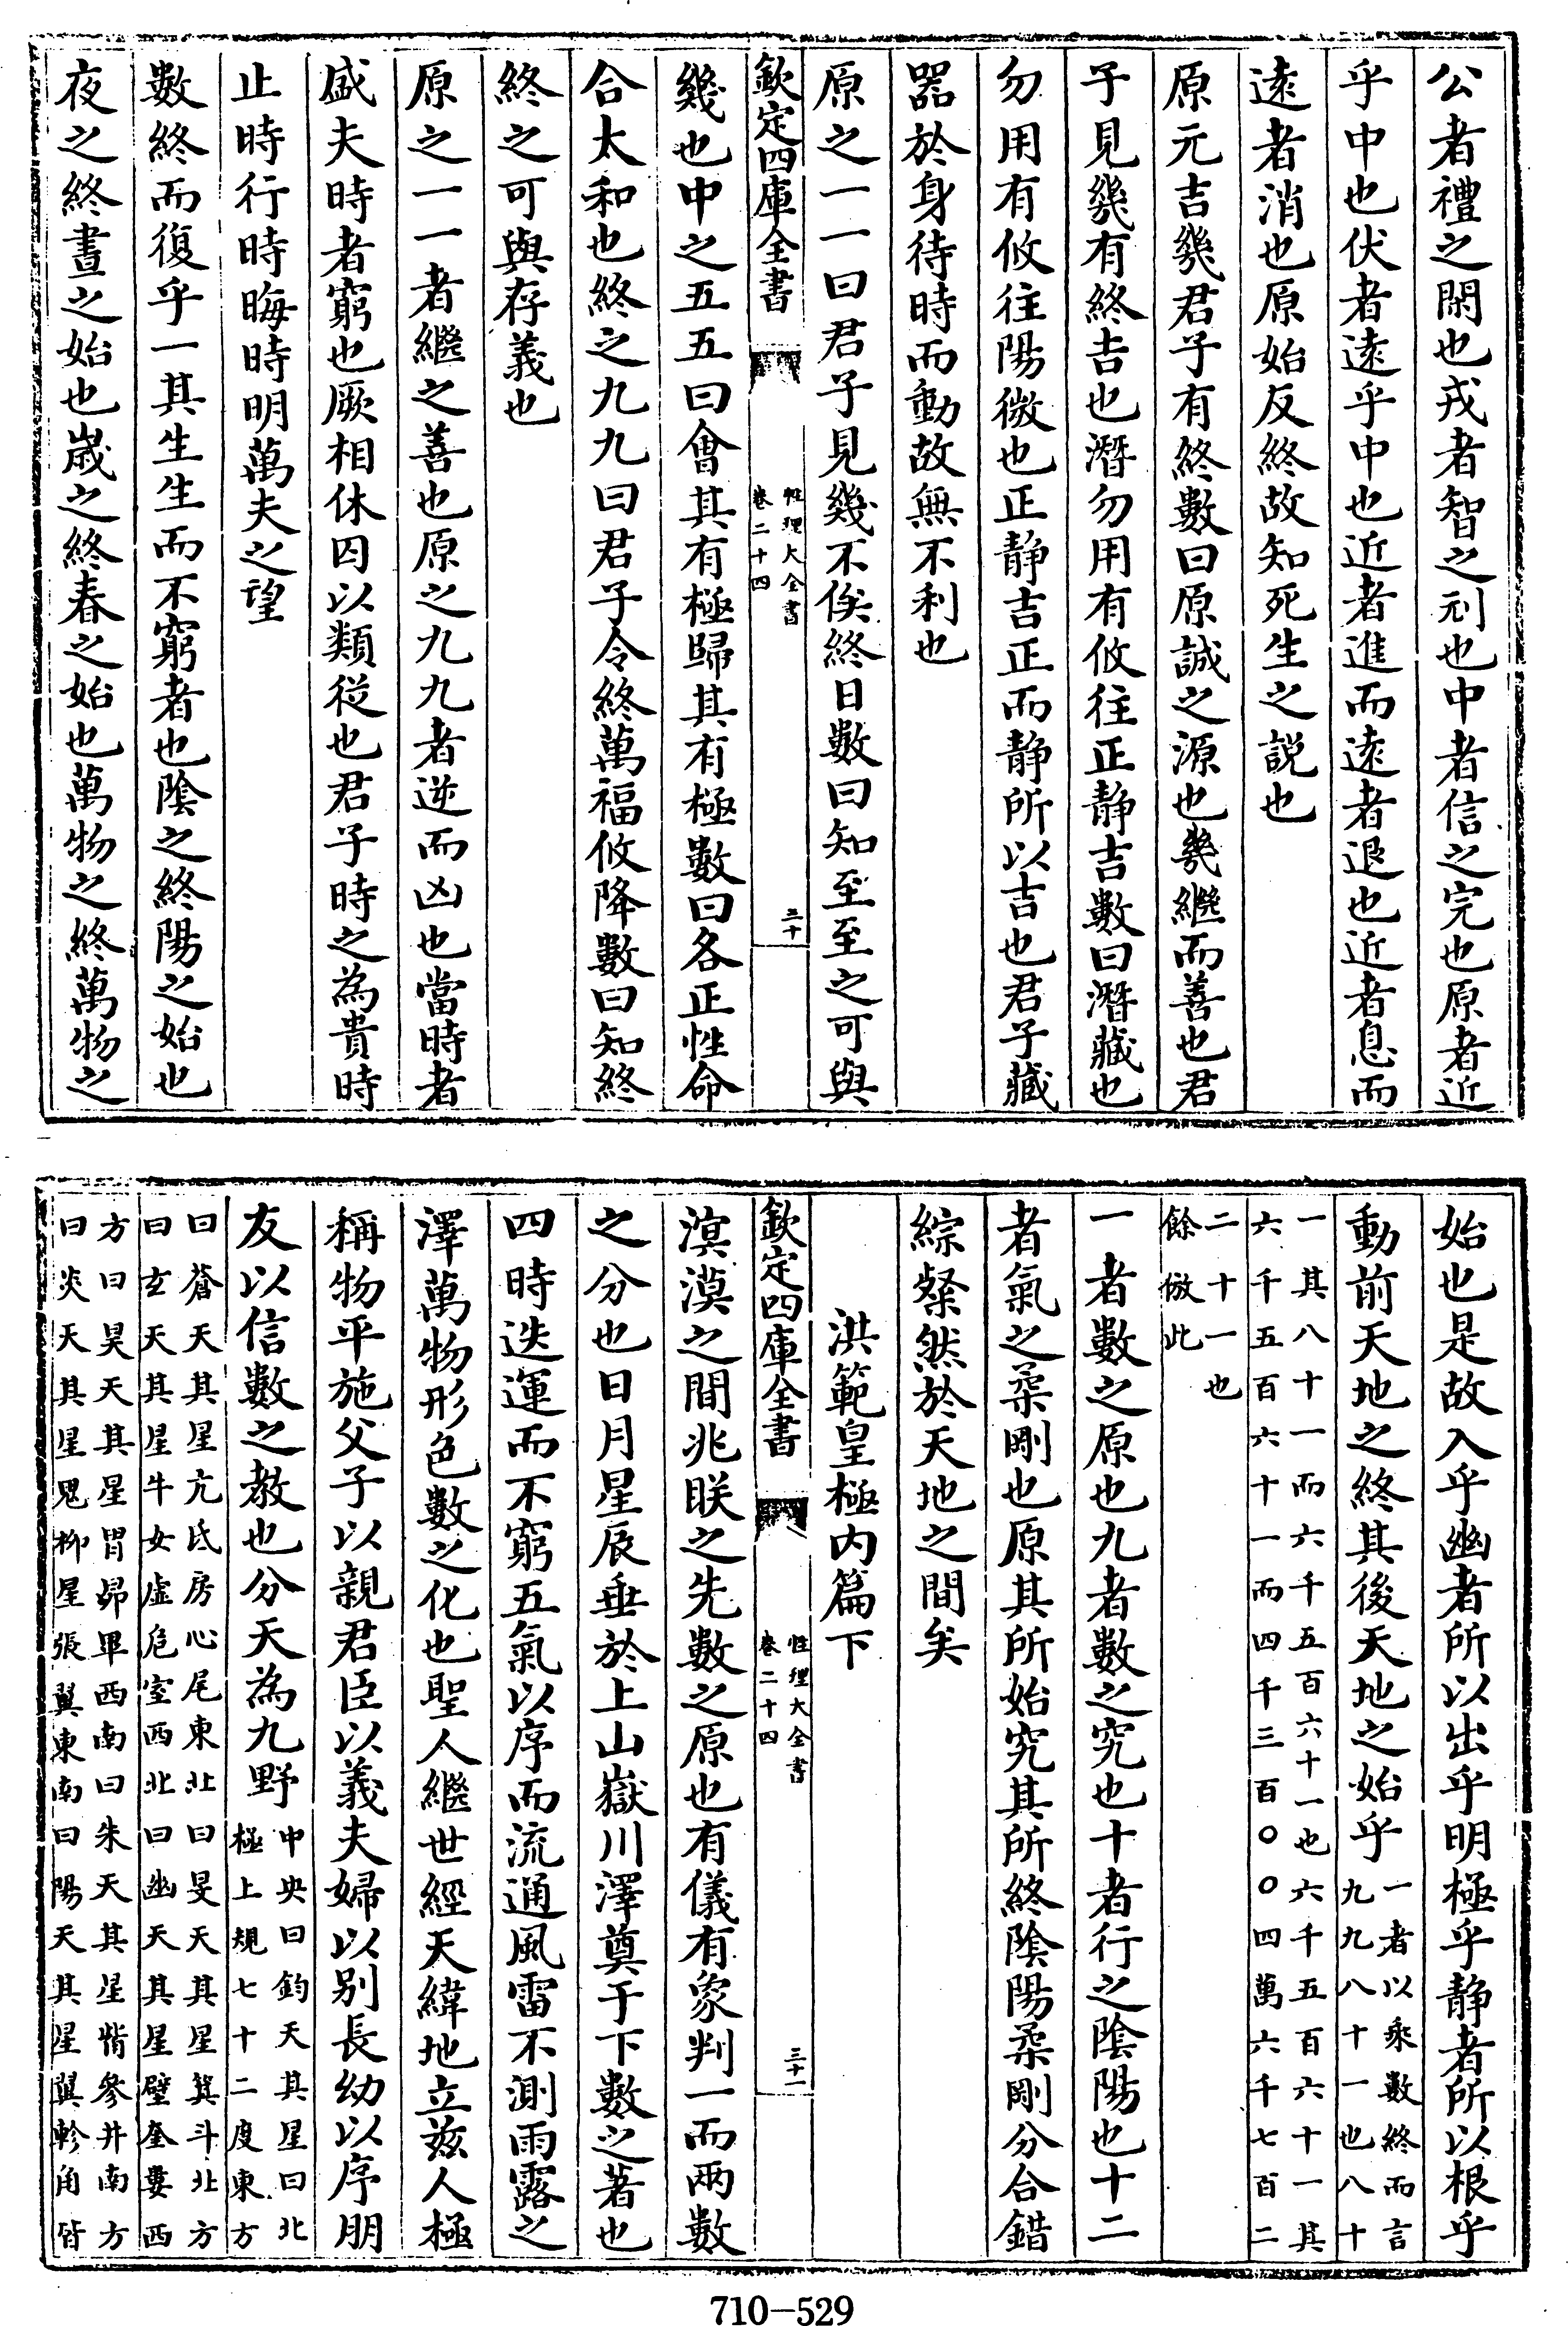 公者禮之閑也戎者智之刓也中者信之完也原者近
乎中也伏者逺乎中也近者進而逺者退也近者息而
逺者消也原始反終故知死生之説也
原元吉幾君子有終數曰原誠之源也幾繼而善也君
子見幾有終吉也潛勿用有攸往正静吉數曰潛藏也
勿用有攸往陽微也正静吉正而静所以吉也君子藏
器於身待時而動故無不利也
原之一一曰君子見幾不俟終日數曰知至至之可與
欽定四庫全書
性理大全書
卷二十四
三十
幾也中之五五曰會其有極歸其有極數曰各正性命
合太和也終之九九曰君子令終萬福攸降數曰知終
終之可與存義也
原之一一者繼之善也原之九九者逆而凶也當時者
盛夫時者窮也厥相休囚以類從也君子時之為貴時
止時行時晦時明萬夫之望
數終而復乎一其生生而不窮者也陰之終陽之始也
夜之終晝之始也嵗之終春之始也萬物之終萬物之
始也是故入乎幽者所以出乎明極乎静者所以根乎
動前天地之終其後天地之始乎一者以乘數終而言
九九八十一也八十
一其八十一而六千五百六十一也六千五百六十一其
六千五百六十一而四千三百〇〇四萬六千七百二
二十一也
餘倣此
一者數之原也九者數之究也十者行之陰陽也十二
者氣之柔剛也原其所始究其所終陰陽柔剛分合錯
綜粲然於天地之間矣
洪範皇極内篇下
欽定四庫全書
性理大全書
卷二十四
三十一
溟漠之間兆眹之先數之原也有儀有象判一而兩數
之分也日月星辰垂於上山嶽川澤奠于下數之著也
四時迭運而不窮五氣以序而流通風雷不測雨露之
澤萬物形色數之化也聖人繼世經天緯地立兹人極
稱物平施父子以親君臣以義夫婦以别長幼以序朋
友以信數之教也分天為九野中央曰鈞天其星曰北
極上規七十二度東方
曰蒼天其星亢氐房心尾東北曰旻天其星箕斗北方
曰玄天其星牛女虛危室西北曰幽天其星壁奎婁西
方曰昊天其星胃昴畢西南曰朱天其星觜參井南方
曰炎天其星鬼柳星張翼東南曰陽天其星翼軫角皆
710-529